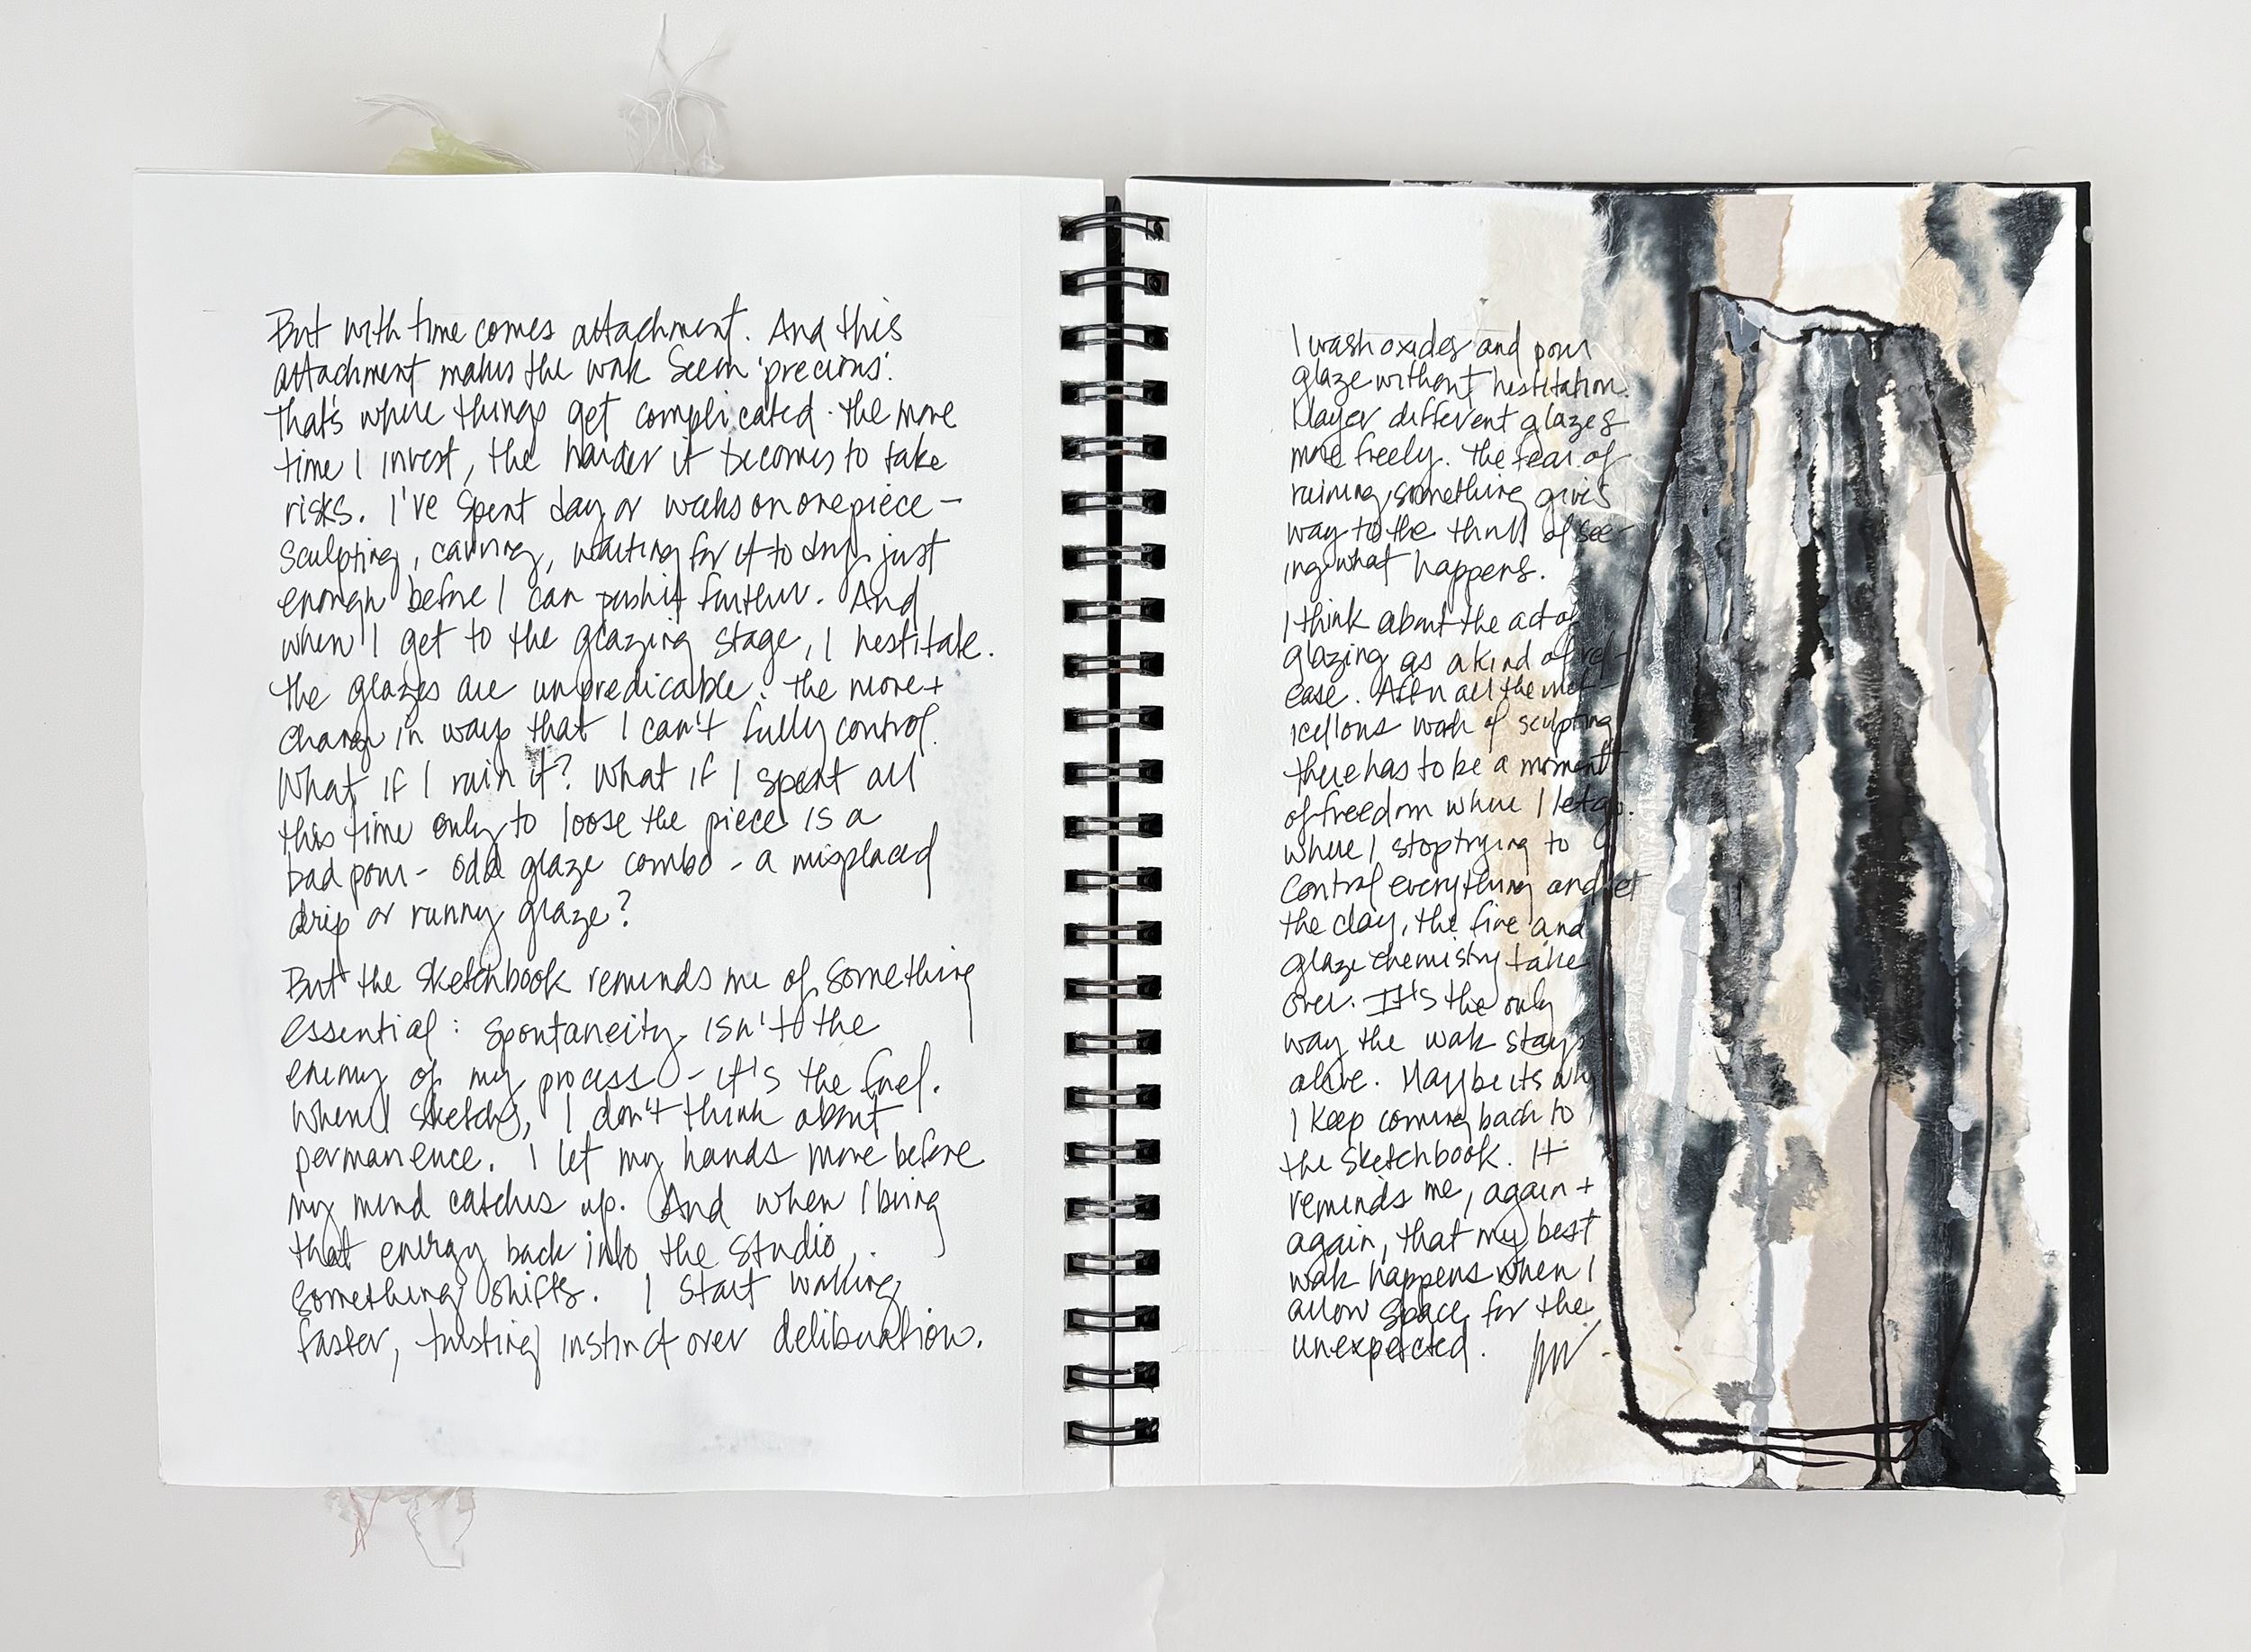 But with time comes attachment. And this
attachment makes the work seem 'precious'.
that's where things get complicated. the more
time I invest, the harder it becomes to take
risks. I've spent day or weeks on one piece –
sculpting, carving, waiting for it to dry just
enough before I can push it further. And
when I get to the glazing stage, I hestitate.
the glazes are unpredicable. the more +
change in ways that I can't fully control.
What if I ruin it? What if I spent all
this time only to loose the piece is a
bad pour - odd glaze combo - a misplaced
drip or runny glaze?
But the sketchbook reminds me of something
essential : spontaneity isn't the
enemy of my process - it's the fuel.
When I sketch, I don't think about
permanence. I let my hands move before
my mind catches up. And when I bring
that energy back into the studio,
something shifts. I start working
faster, trusting instinct over deliberation.
I wash oxides and pour
glaze without hestitation.
I layer different glazes
more freely. The fear of
ruining something gives
way to the thrill of see-
ing what happens.
I think about the act of
glazing as a kind of rel-
ease. After all the met-
icellous work of sculpting
there has to be a moment
of freedom where I let go.
where I stop trying to
control everything and let
the clay, the fire and
glaze chemistry take
over. It's the only
way the work stays
alive. Maybe its why
I keep coming back to
the sketchbook. It
reminds me, again +
again, that my best
work happens when I
allow space for the
unexpected.